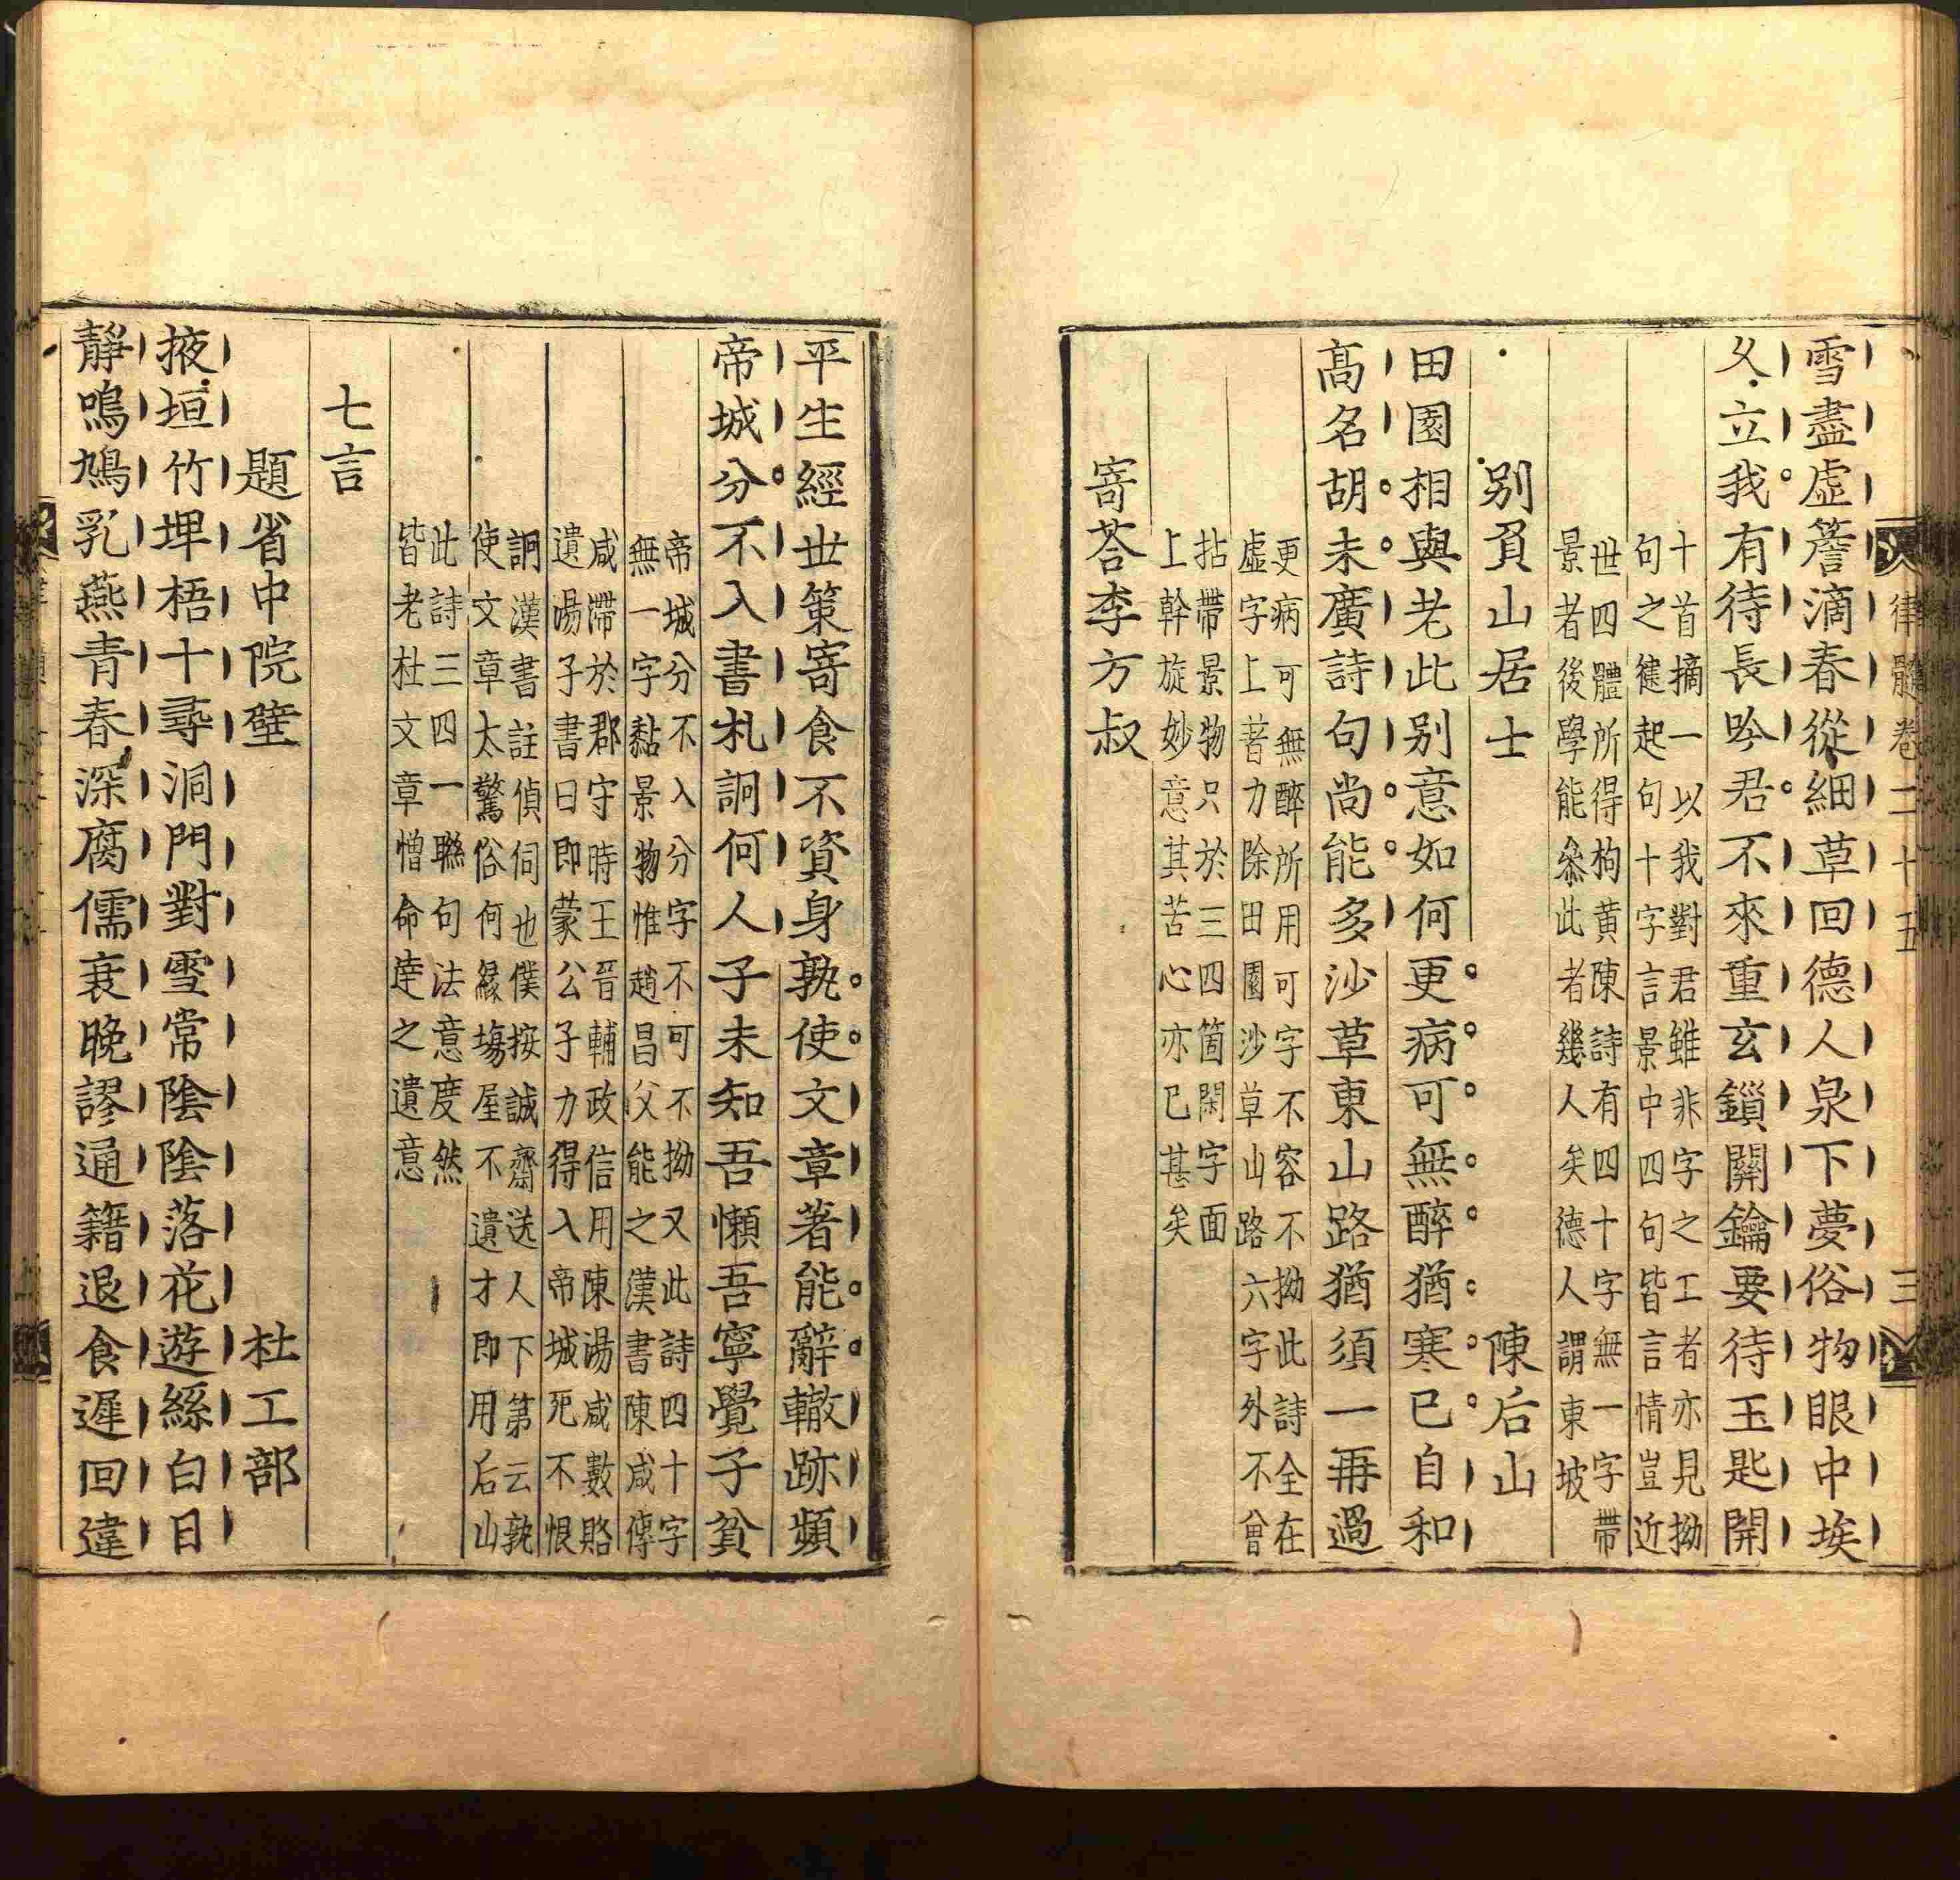 律髓卷二十五 三
雪盡虛簷滴春從細草回德人泉下夢俗物眼中埃
久立我有待長吟君不來重玄鎖關鑰要待玉匙開
十首摘一以我對君雖非字之工者亦見拗
句之健起句十字言景中四句皆言情豈近
世四體所得拘黄陳詩有四十字無一字帶
景者後學能叅此者幾人矣德人謂東坡
別負山居士 陳后山
田園相與老此别意如何更病可無醉猶寒已自和
高名胡未廣詩句尚能多沙草東山路猶須一再過
更病可無醉所用可字不容不拗此詩全在
虛字上著力除田園沙草山路六字外不曾
拈帶景物只於三四箇閑字面
上幹旋妙意其苦心亦已甚矣
寄荅李方叔
平生經世策寄食不資身孰使文章著能辭轍跡頻
帝城分不入書札詗何人子未知吾懶吾寧覺子貧
帝城分不入分字不可不拗又此詩四十字
無一字黏景物惟趙昌父能之漢書陳咸傳
咸滯於郡守時王晉輔政信用陳湯咸數賂
遺湯子書曰即蒙公子力得入帝城死不恨
詗漢書註偵伺也僕按誠齋送人下第云孰
使文章太驚俗何縁塲屋不遺才即用后山
此詩三四一聯句法意度然
皆老杜文章憎命達之遺意
七言
題省中院壁 杜工部
掖垣竹埤梧十尋洞門對雪常陰陰落花遊絲白日
靜鳴鳩乳燕青春深腐儒衰晚謬通籍退食遲回違